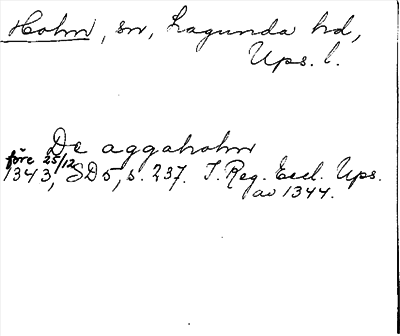 Holm, sn, Lagunda hd,
Ups. l.
De aggaholm
före 25/12
1343, SD 5, s. 237. I. Reg. Eccl. Ups.
av 1344.